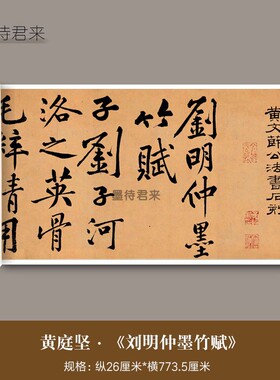 待君来
黄文節公法書石刻
劉明仲墨
竹賦
子劉子河
洛之英骨
毛粹清用
墨待君来
黄庭坚·《刘明仲墨竹赋》
规格：纵26厘米*横773.5厘米